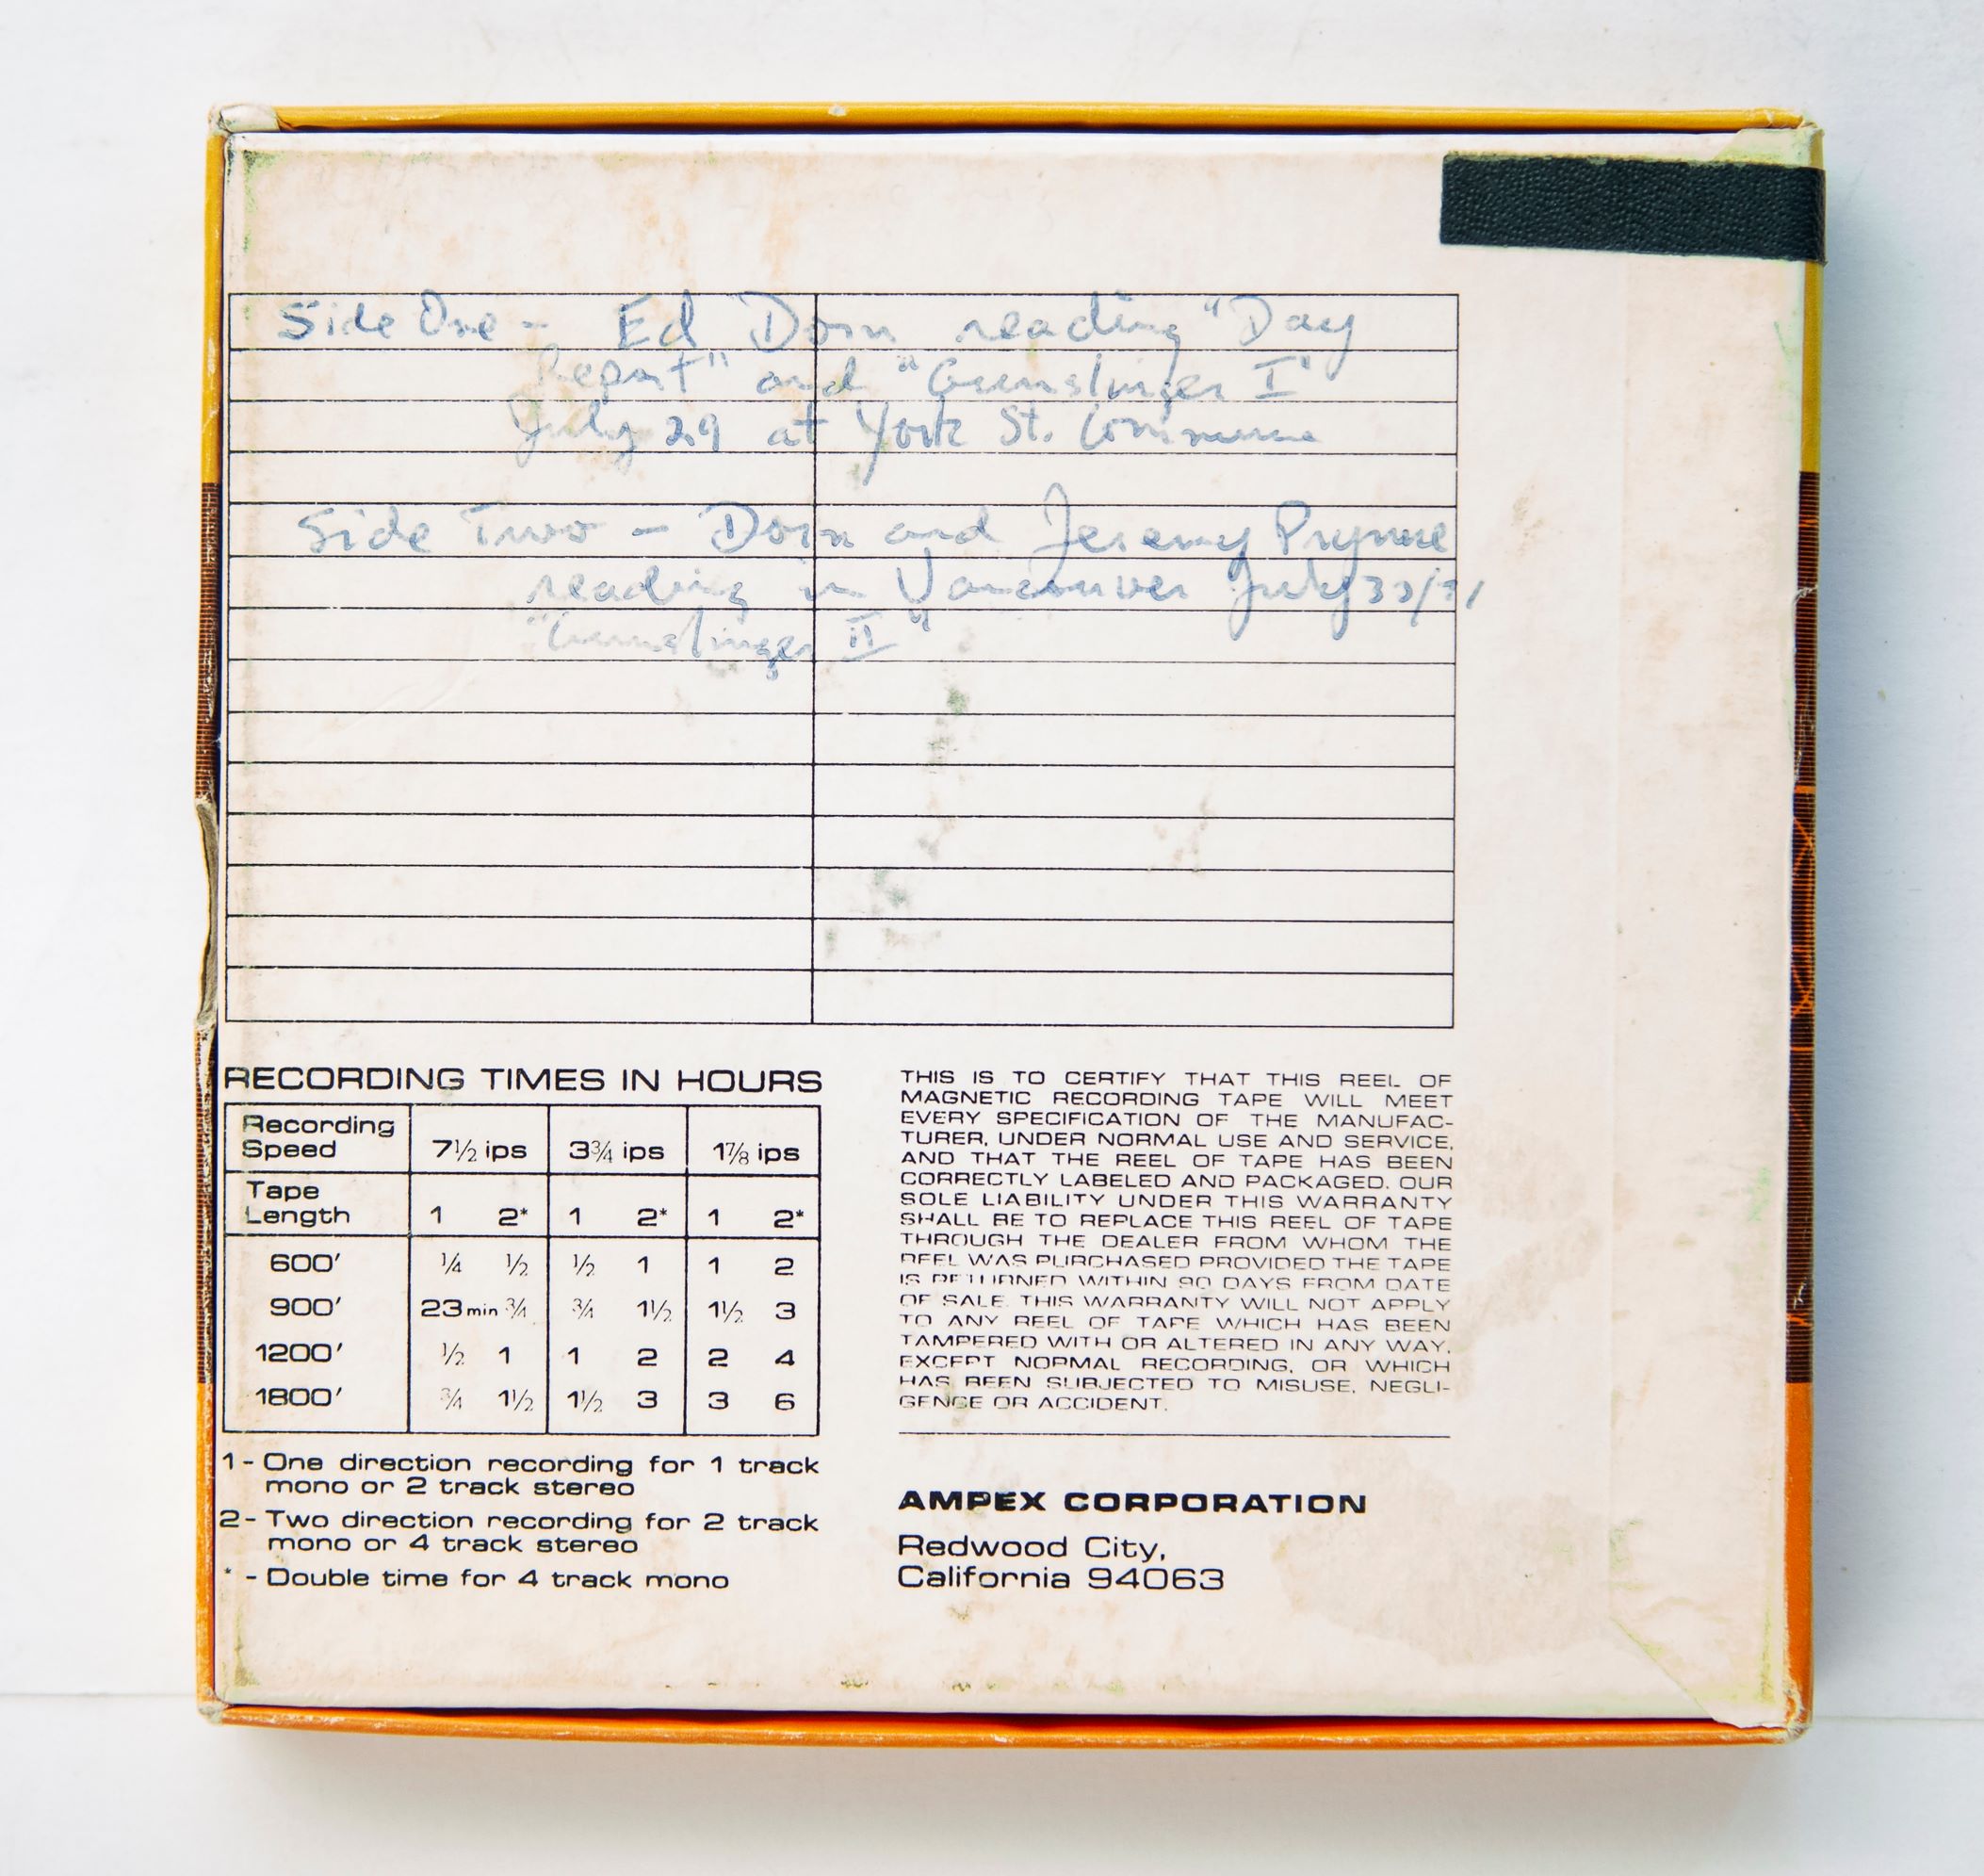 Side One - Ed Dorn reading "Day
Report" and "Gunslinger I"
July 29 at York St. Commune
Side Two - Dorn and Jeremy Prynne
reading in Vancouver July
"Gunslinger II"
RECORDING TIMES IN HOURS
Recording Speed 7½ ips 3¾ ips 1⅞ ips
Tape Length 1 2* 1 2* 1 2*
600' ¼ ½ ½ 1 1 2
900' 23min ¾ ¾ 1½ 1½ 3
1200' ½ 1 1 2 2 4
1800' ¾ 1½ 1½ 3 3 6
1- One direction recording for 1 track
mono or 2 track stereo
2- Two direction recording for 2 track
mono or 4 track stereo
* - Double time for 4 track mono
THIS IS TO CERTIFY THAT THIS REEL OF
MAGNETIC RECORDING TAPE WILL MEET
EVERY SPECIFICATION OF THE MANUFAC-
TURER, UNDER NORMAL USE AND SERVICE,
AND THAT THE REEL OF TAPE HAS BEEN
CORRECTLY LABELED AND PACKAGED. OUR
SOLE LIABILITY UNDER THIS WARRANTY
SHALL BE TO REPLACE THIS REEL OF TAPE
THROUGH THE DEALER FROM WHOM THE
REEL WAS PURCHASED PROVIDED THE TAPE
IS RETURNED WITHIN 90 DAYS FROM DATE
OF SALE. THIS WARRANTY WILL NOT APPLY
TO ANY REEL OF TAPE WHICH HAS BEEN
TAMPERED WITH OR ALTERED IN ANY WAY,
EXCEPT NORMAL RECORDING, OR WHICH
HAS BEEN SUBJECTED TO MISUSE, NEGLI-
GENCE OR ACCIDENT.
AMPEX CORPORATION
Redwood City,
California 94063